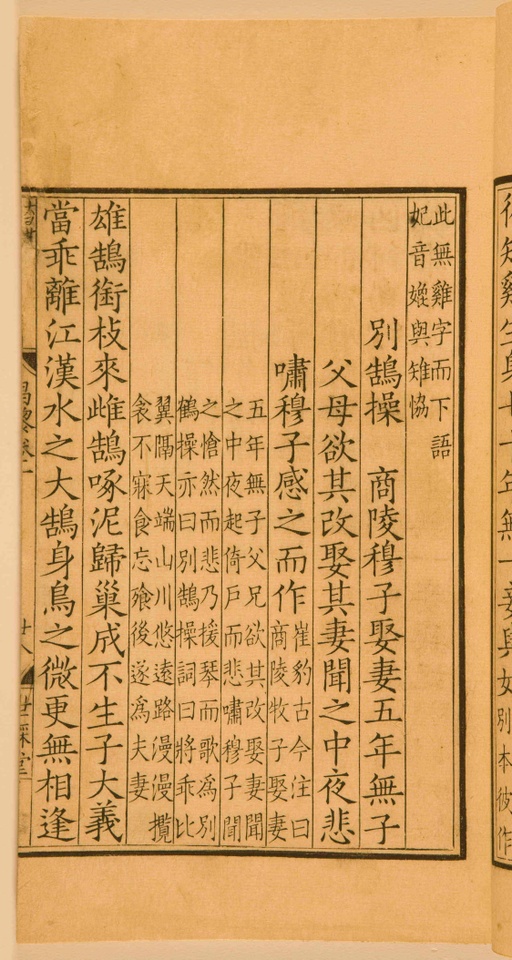 雞生身七十年無一妾與
此無雞字而下語
妃音媲與雉恊
別鵠操　商陵穆子娶妻五年無子
父母欲其改娶其妻聞之中夜悲
嘯穆子感之而作
崔豹古今注曰
商陵牧子娶妻
五年無子父兄欲其改娶妻聞
之中夜起倚戶而悲嘯穆子聞
之愴然而悲乃援琴而歌為別
鶴操亦曰別鵠操詞曰將乖比
翼隔天端山川悠遠路漫漫攬
衾不寐食忘飱後遂為夫妻
雄鵠銜枝來雌鵠啄泥歸巢成不生子大義
當乖離江漢水之大鵠身鳥之微更無相逢